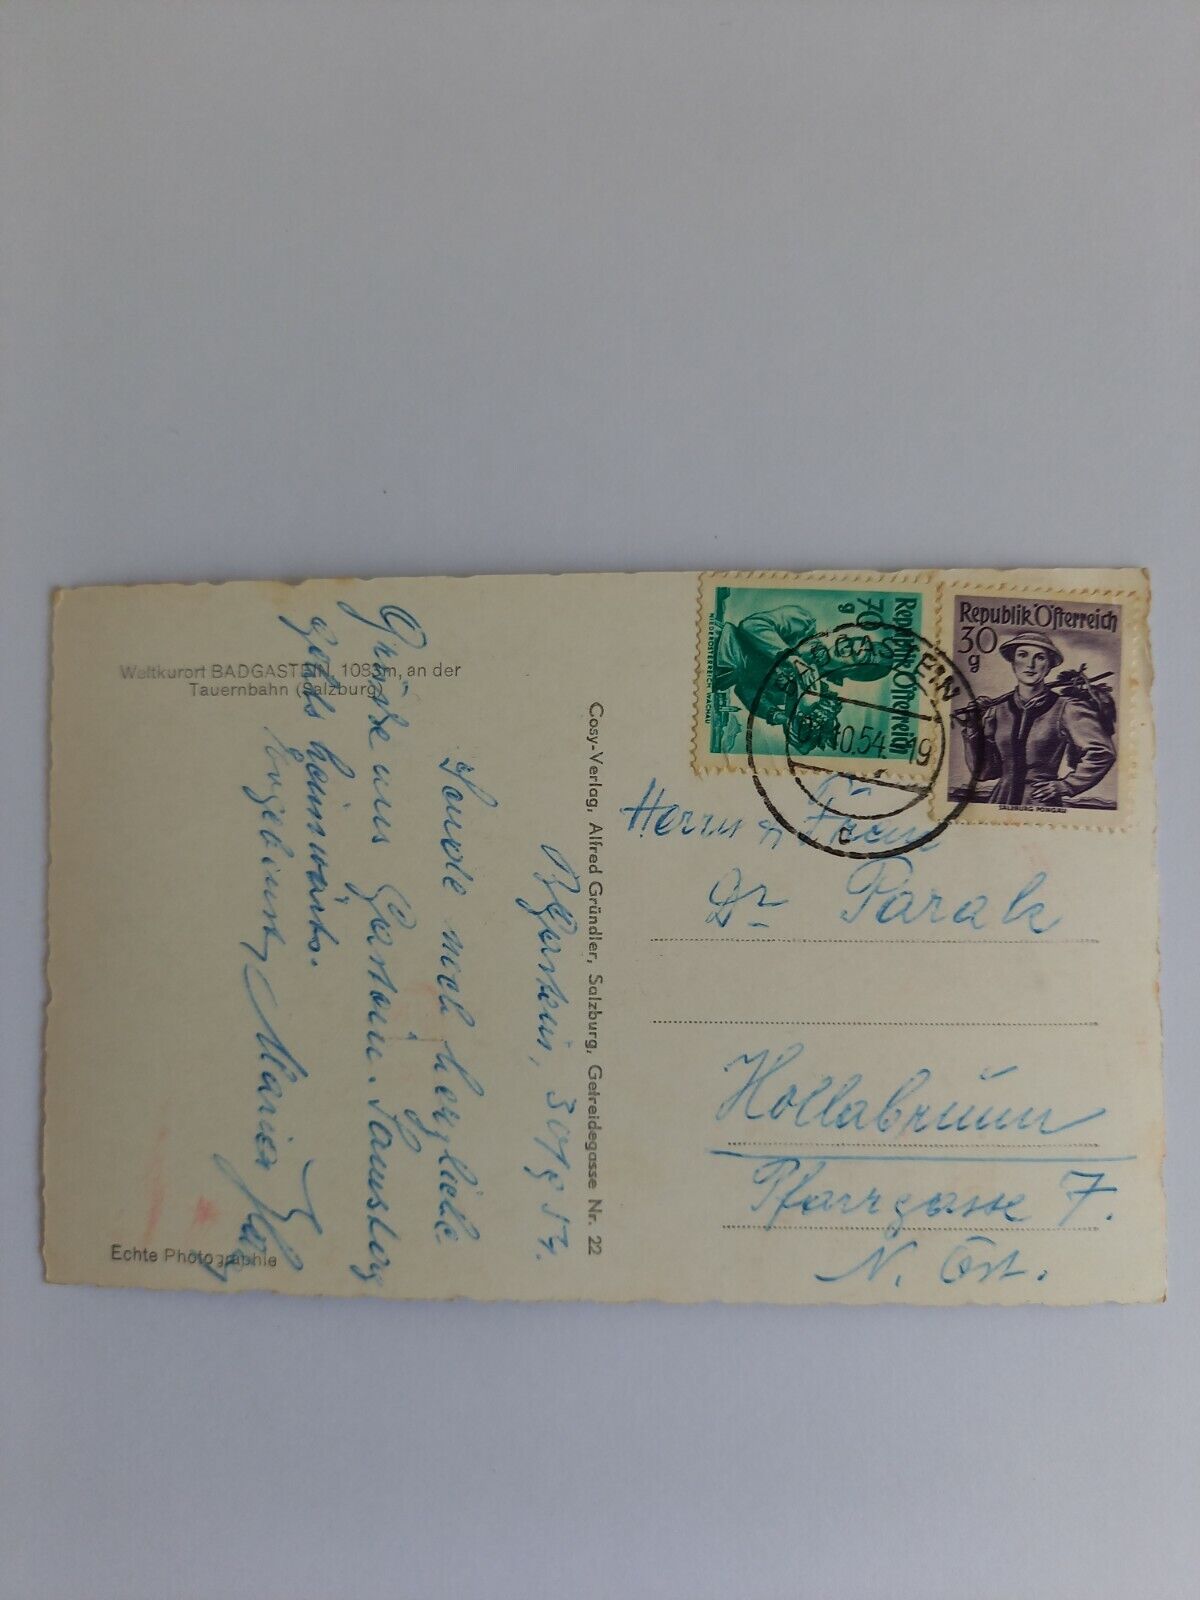 Weltkurort BADGASTEIN, 1083m, an der
Tauernbahn (Salzburg)
30/9 54.
Sende noch herzliche
Grüße aus Gastein. Samstag
geht's heimwärts.
Maria
Echte Photographie
Cosy-Verlag, Alfred Gründler, Salzburg, Getreidegasse Nr. 22
Republik Österreich
70
g
NIEDERÖSTERREICH WACHAU
Republik Österreich
30
g
SALZBURG PONGAU
BADGASTEIN
10.54 19
c
Herrn u. Frau
Dr. Parak
Hollabrunn
Pfarrgasse 7.
N. Öst.